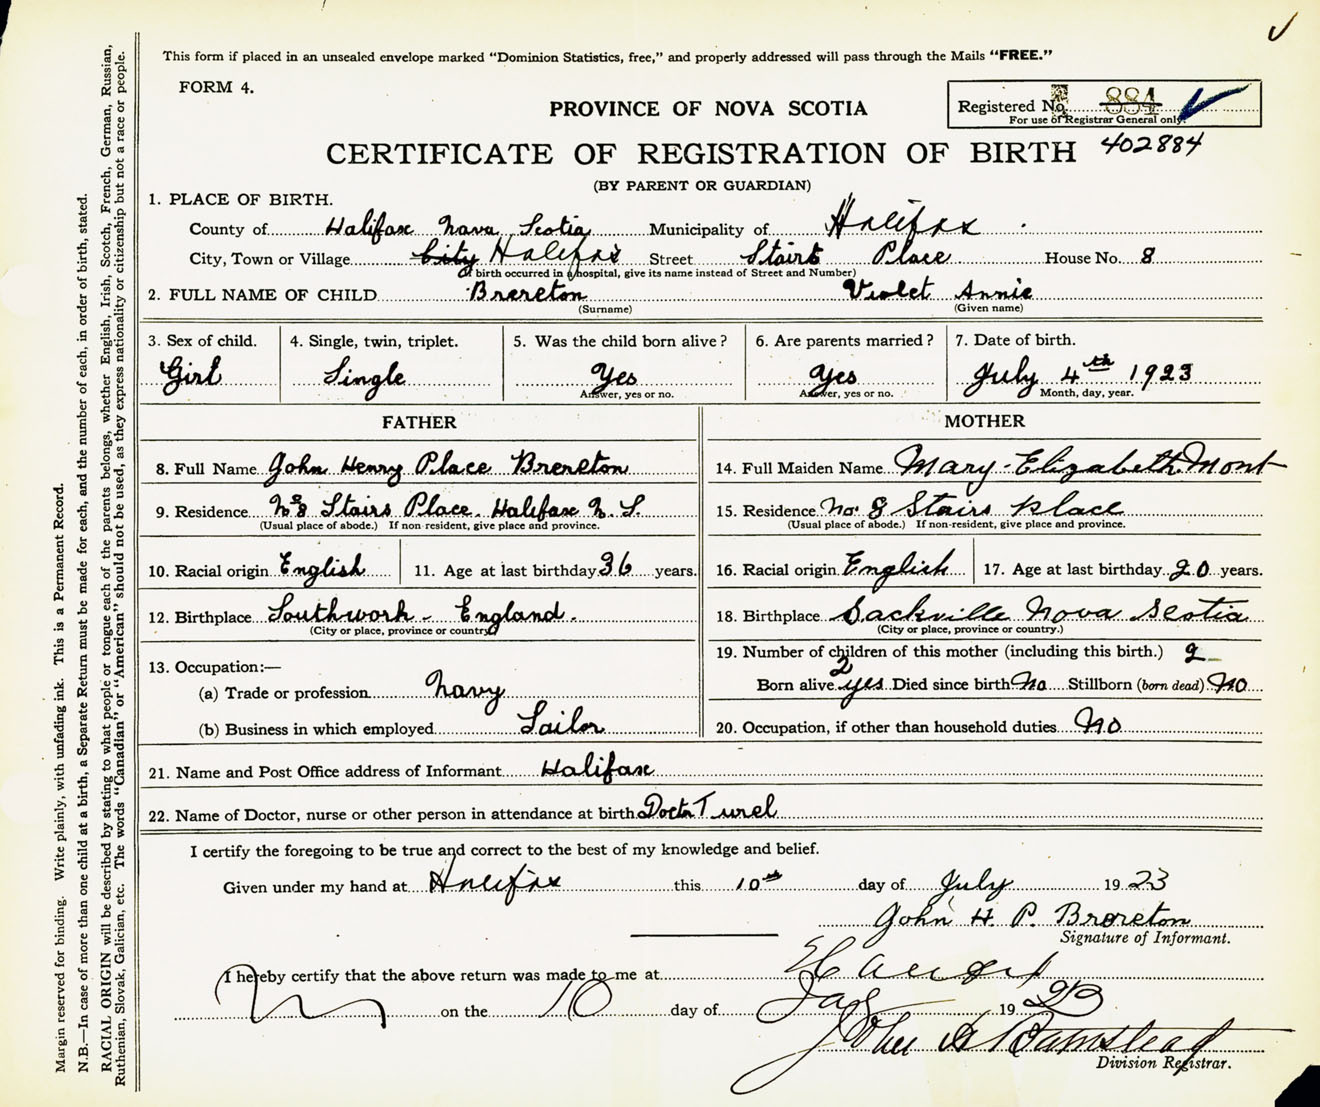 This form if placed in an unsealed envelope marked "Dominion Statistics, free," and properly addressed will pass through the Mails "FREE."
FORM 4.
Registered No. 884
For use of Registrar General only.
PROVINCE OF NOVA SCOTIA
402884
CERTIFICATE OF REGISTRATION OF BIRTH
(BY PARENT OR GUARDIAN)
1. PLACE OF BIRTH.
County of Halifax Nova Scotia Municipality of Halifax
City, Town or Village City Halifax Street Stairs Place House No. 8
(If birth occurred in a hospital, give its name instead of Street and Number)
2. FULL NAME OF CHILD Brereton Violet Annie
(Surname) (Given name)
3. Sex of child. 4. Single, twin, triplet. 5. Was the child born alive? 6. Are parents married? 7. Date of birth.
Girl Single Yes Yes July 4th 1923
Answer, yes or no. Answer, yes or no. Month, day, year.
FATHER
8. Full Name John Henry Place Brereton
9. Residence No 8 Stairs Place. Halifax N. S.
(Usual place of abode.) If non-resident, give place and province.
10. Racial origin English 11. Age at last birthday 36 years.
12. Birthplace Southwork - England.
(City or place, province or country.)
13. Occupation:—
(a) Trade or profession Navy
(b) Business in which employed Sailor
MOTHER
14. Full Maiden Name Mary-Elizabeth Mont
15. Residence No. 8 Stairs place
(Usual place of abode.) If non-resident, give place and province.
16. Racial origin English 17. Age at last birthday 20 years.
18. Birthplace Sackville Nova Scotia
(City or place, province or country.)
19. Number of children of this mother (including this birth.) 2
Born alive 2 yes Died since birth No Stillborn (born dead) No
20. Occupation, if other than household duties No
21. Name and Post Office address of Informant Halifax
22. Name of Doctor, nurse or other person in attendance at birth Doctor Turel
I certify the foregoing to be true and correct to the best of my knowledge and belief.
Given under my hand at Halifax this 10th day of July 1923
John H. P. Brereton
Signature of Informant.
I hereby certify that the above return was made to me at
on the 10 day of 1923
Division Registrar.
Margin reserved for binding. Write plainly, with unfading ink. This is a Permanent Record.
N.B.—In case of more than one child at a birth, a Separate Return must be made for each, and the number of each, in order of birth, stated.
RACIAL ORIGIN will be described by stating to what people or tongue each of the parents belongs, whether English, Irish, Scotch, French, German, Russian,
Ruthenian, Slovak, Galician, etc. The words "Canadian" or "American" should not be used, as they express nationality or citizenship but not a race or people.